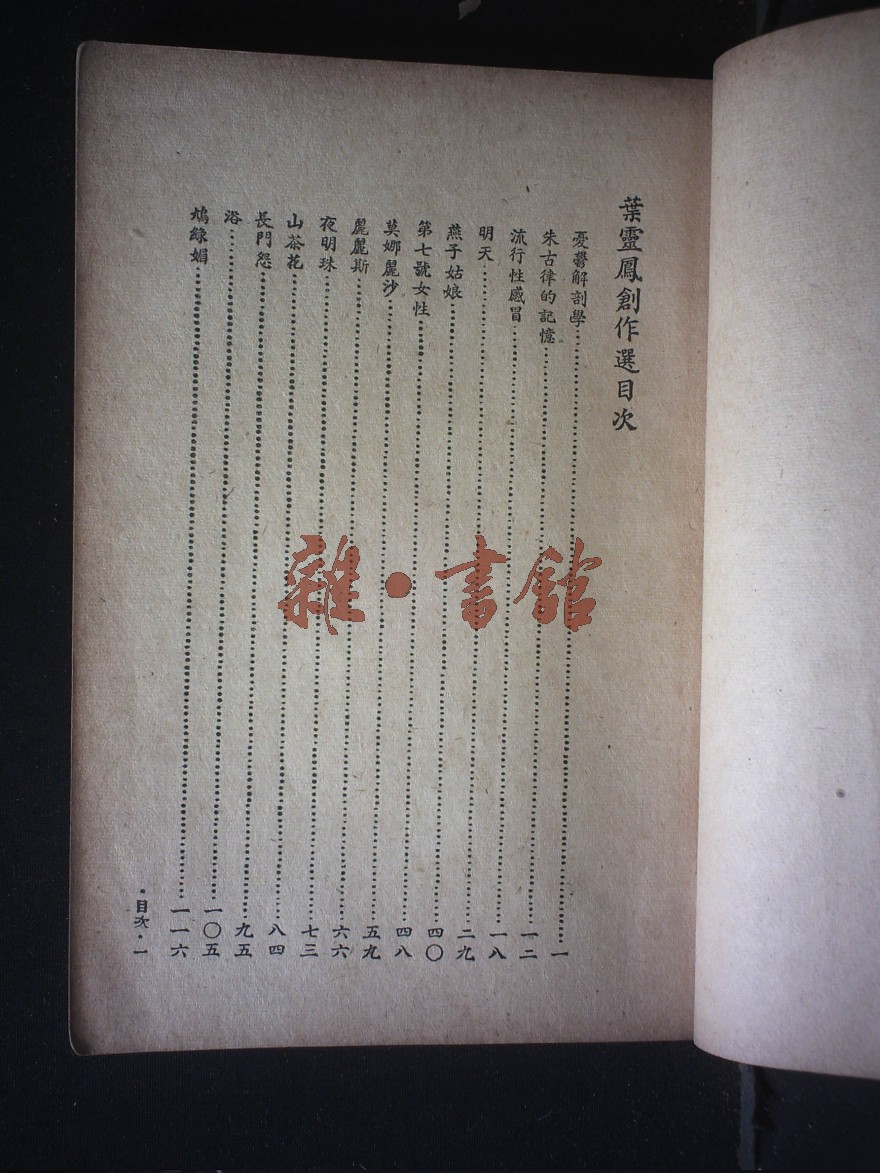 葉靈鳳創作選目次
憂鬱解剖學……一
朱古律的記憶……一二
流行性感冒……一八
明天……二九
燕子姑娘……四〇
第七號女性……四八
莫娜麗沙……五九
麗麗斯……六六
夜明珠……七三
山茶花……八四
長門怨……九五
浴……一〇五
鳩綠媚……一一六
·目次·一
雜·書館